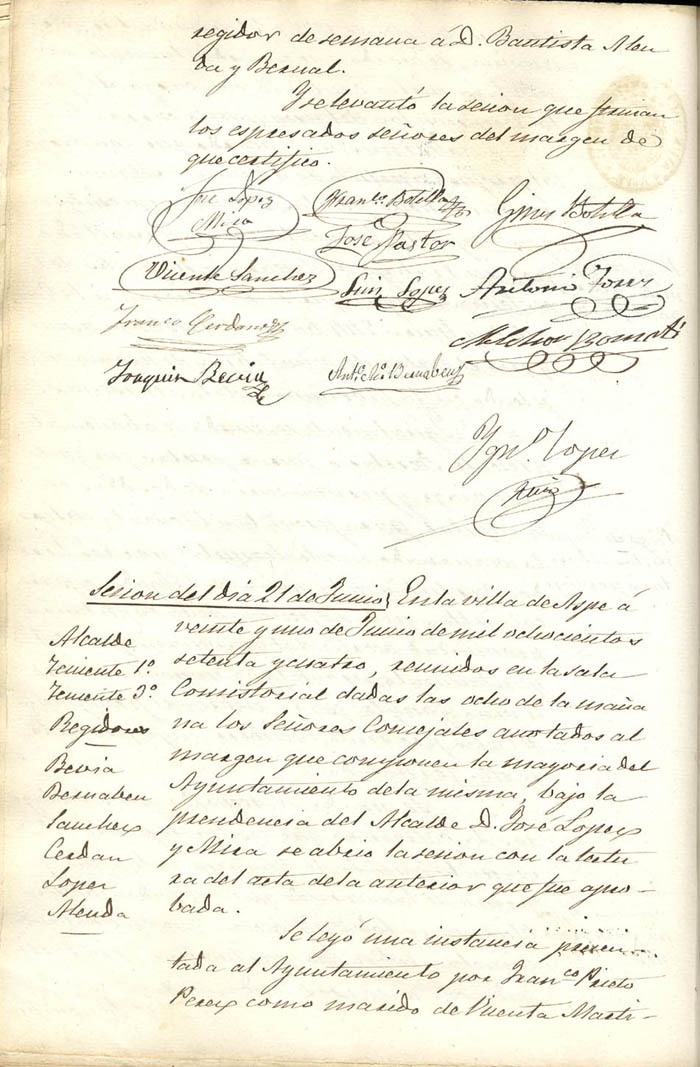 regidor de semana á D. Bautista Alen
da y Bernal.
Y se levantó la sesion que firman
los espresados señores del margen de
que certifico.
José Lopez
Mira
Franco. Botella
Gines Botella
José Pastor
Vicente Sanchez
Luis Lopez
Antonio
Franco Cerdan
Melchor
Joaquin Bevia
Anto. Bernabeu
Ygno. Lopez
Sesion del dia 21 de Junio; En la villa de Aspe á
veinte y uno de Junio de mil ochocientos
setenta y cuatro, reunidos en la sala
Comistorial dadas las ocho de la maña
na los Señores Concejales anotados al
margen que componen la mayoria del
Ayuntamiento de la misma, bajo la
presidencia del Alcalde D. José Lopez
y Mira se abrio la sesion con la lectu
ra del acta de la anterior que fue apro-
bada.
Alcalde
Teniente 1º
Teniente 3º
Regidores
Bevia
Bernabeu
Sanchez
Cerdan
Lopez
Alenda
Se leyó una instancia presen-
tada al Ayuntamiento por Franco Prieto
Perez como marido de Vicenta Marti-